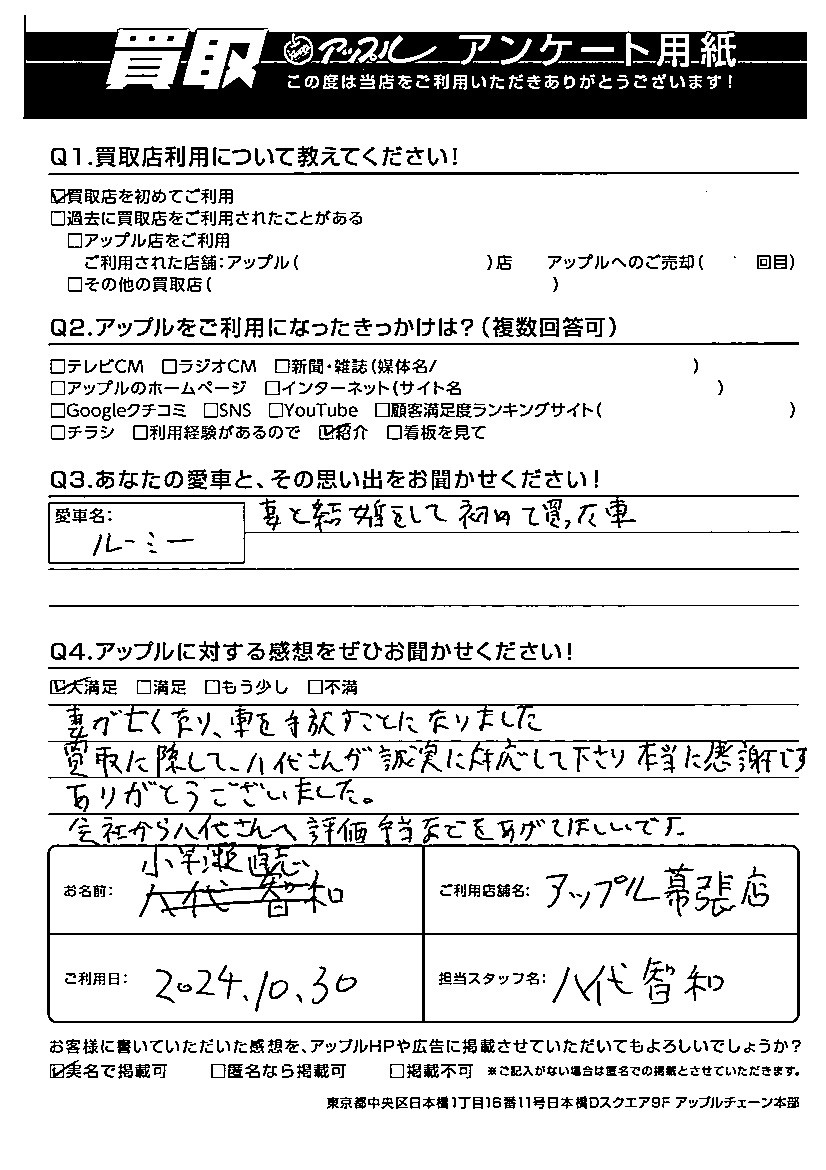 買取 アップル アンケート用紙
この度は当店をご利用いただきありがとうございます!
Q1.買取店利用について教えてください!
☑買取店を初めてご利用
□過去に買取店をご利用されたことがある
□アップル店をご利用
ご利用された店舗:アップル( )店 アップルへのご売却( 回目)
□その他の買取店( )
Q2.アップルをご利用になったきっかけは?(複数回答可)
□テレビCM □ラジオCM □新聞・雑誌(媒体名/ )
□アップルのホームページ □インターネット(サイト名 )
□Googleクチコミ □SNS □YouTube □顧客満足度ランキングサイト( )
□チラシ □利用経験があるので ☑紹介 □看板を見て
Q3.あなたの愛車と、その思い出をお聞かせください!
愛車名: 妻と結婚をして初めて買った車
ルーミー
Q4.アップルに対する感想をぜひお聞かせください!
☑大満足 □満足 □もう少し □不満
妻が亡くなり、車を手放すことになりました
買取に際して、八代さんが誠実に対応して下さり本当に感謝です
ありがとうございました。
会社から八代さんへ評価手当などをあげてほしいです。
小早瀬直志
お名前: 八代智和 ご利用店舗名: アップル幕張店
ご利用日: 2024.10.30 担当スタッフ名: 八代智和
お客様に書いていただいた感想を、アップルHPや広告に掲載させていただいてもよろしいでしょうか?
☑実名で掲載可 □匿名なら掲載可 □掲載不可 ※ご記入がない場合は匿名での掲載とさせていただきます。
東京都中央区日本橋1丁目16番11号日本橋Dスクエア9F アップルチェーン本部